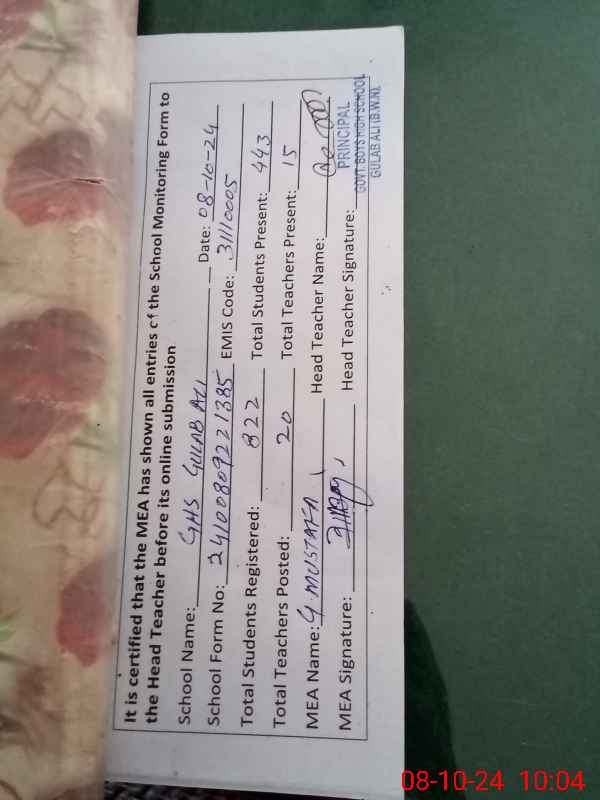 It is certified that the MEA has shown all entries of the School Monitoring Form to
the Head Teacher before its online submission
School Name: GHS GULAB ALI Date: 08-10-24
School Form No: 24100809221385 EMIS Code: 31110005
Total Students Registered: 822 Total Students Present: 443
Total Teachers Posted: 20 Total Teachers Present: 15
MEA Name: G. MUSTAFA Head Teacher Name:
MEA Signature: Head Teacher Signature:
PRINCIPAL
GOVT. BOYS HIGH SCHOOL
GULAB ALI (B.W.N)
08-10-24 10:04